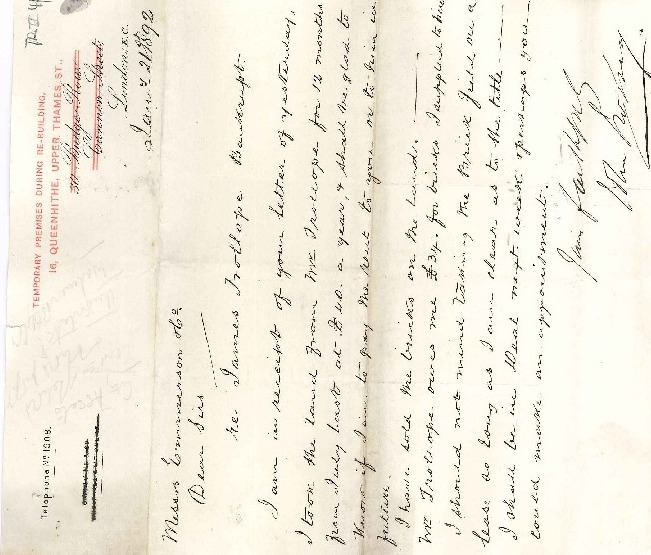 TEMPORARY PREMISES DURING RE-BUILDING,
16, QUEENHITHE, UPPER THAMES ST.,
Telephone No 1508.
London E.C.
Jany 21st 1892
Messrs Emmerson & Co
Dear Sirs
re. James Trollope Bankrupt.
I am in receipt of your letter of yesterday.
I took the land from Mr Trollope for 12 months
from July last at £40. a year, & shall be glad to
know if I am to pay the rent to you or to him in
future.
I have sold the bricks on the land.
Mr Trollope owes me £34. for bricks I supplied to him
I should not mind taking the Brick field on a
lease so long as I am clear as to the title
I shall be in Deal next week & perhaps you
could make an appointment.
Yours faithfully